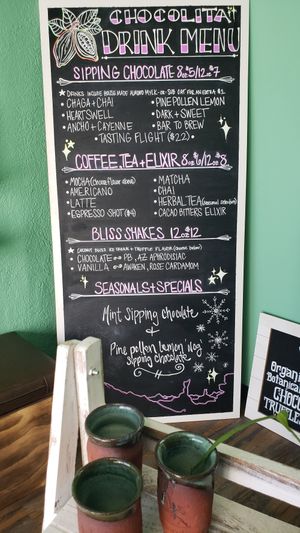 CHOCOLITA
DRINK MENU
SIPPING CHOCOLATE 8oz 5/12oz 7
DRINKS INCLUDE HOUSE MADE ALMOND MYLK OR SUB OAT FOR AN EXTRA $1.
CHAGA + CHAI
HEARTSWELL
ANCHO + CAYENNE
PINE POLLEN LEMON
DARK + SWEET
BAR TO BREW
TASTING FLIGHT ($22)
COFFEE, TEA + ELIXIR 8oz 6/12oz 8
MOCHA
AMERICANO
LATTE
ESPRESSO SHOT ($4)
MATCHA
CHAI
HERBAL TEA
CACAO BITTERS ELIXIR
BLISS SHAKES 12oz 12
ICE CREAM + TRUFFLE FLAVOR
CHOCOLATE PB, AZ APHRODISIAC
VANILLA AWAKEN, ROSE CARDAMOM
SEASONALS + SPECIALS
Mint Sipping Chocolate
+
Pine pollen lemon nog
sipping chocolate
Organic
Botanical
CHOCO
TRUFFLE